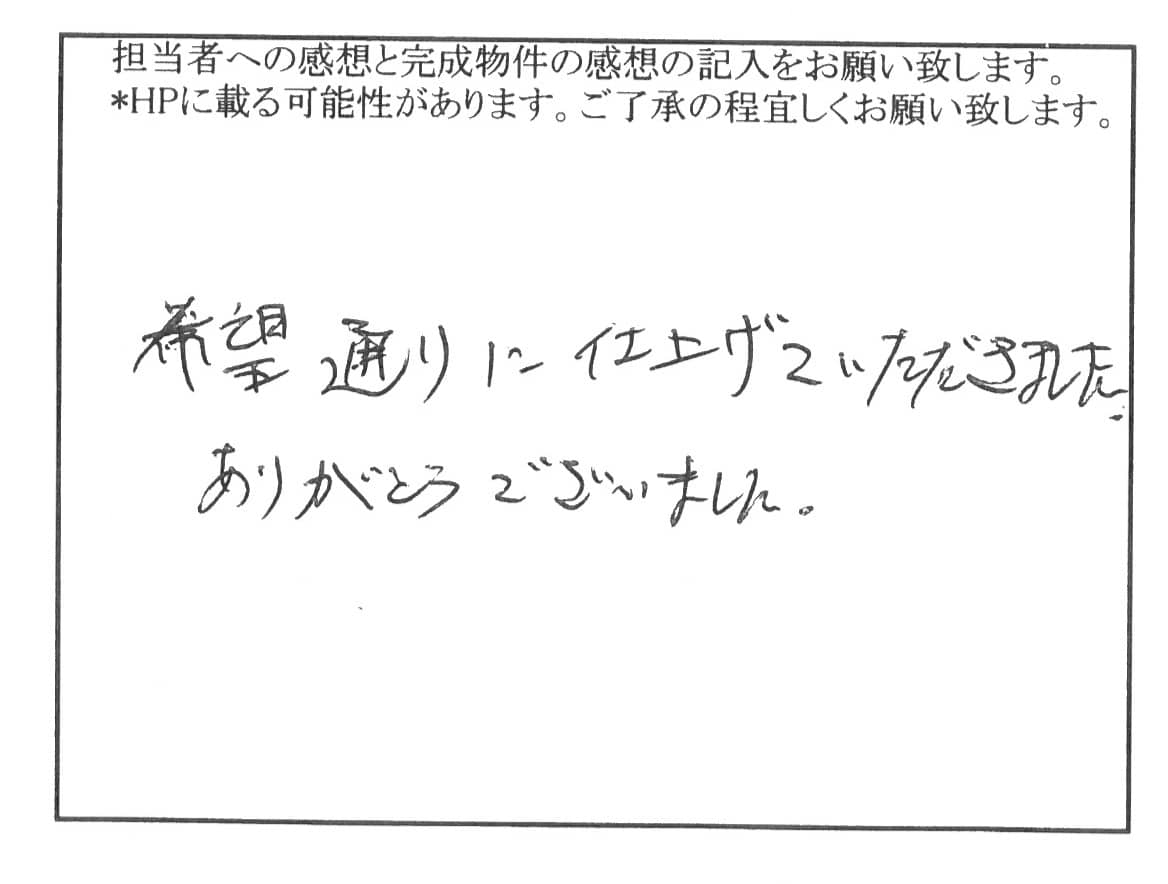 担当者への感想と完成物件の感想の記入をお願い致します。
*HPに載る可能性があります。ご了承の程宜しくお願い致します。
希望通りに仕上げていただきました。
ありがとうございました。